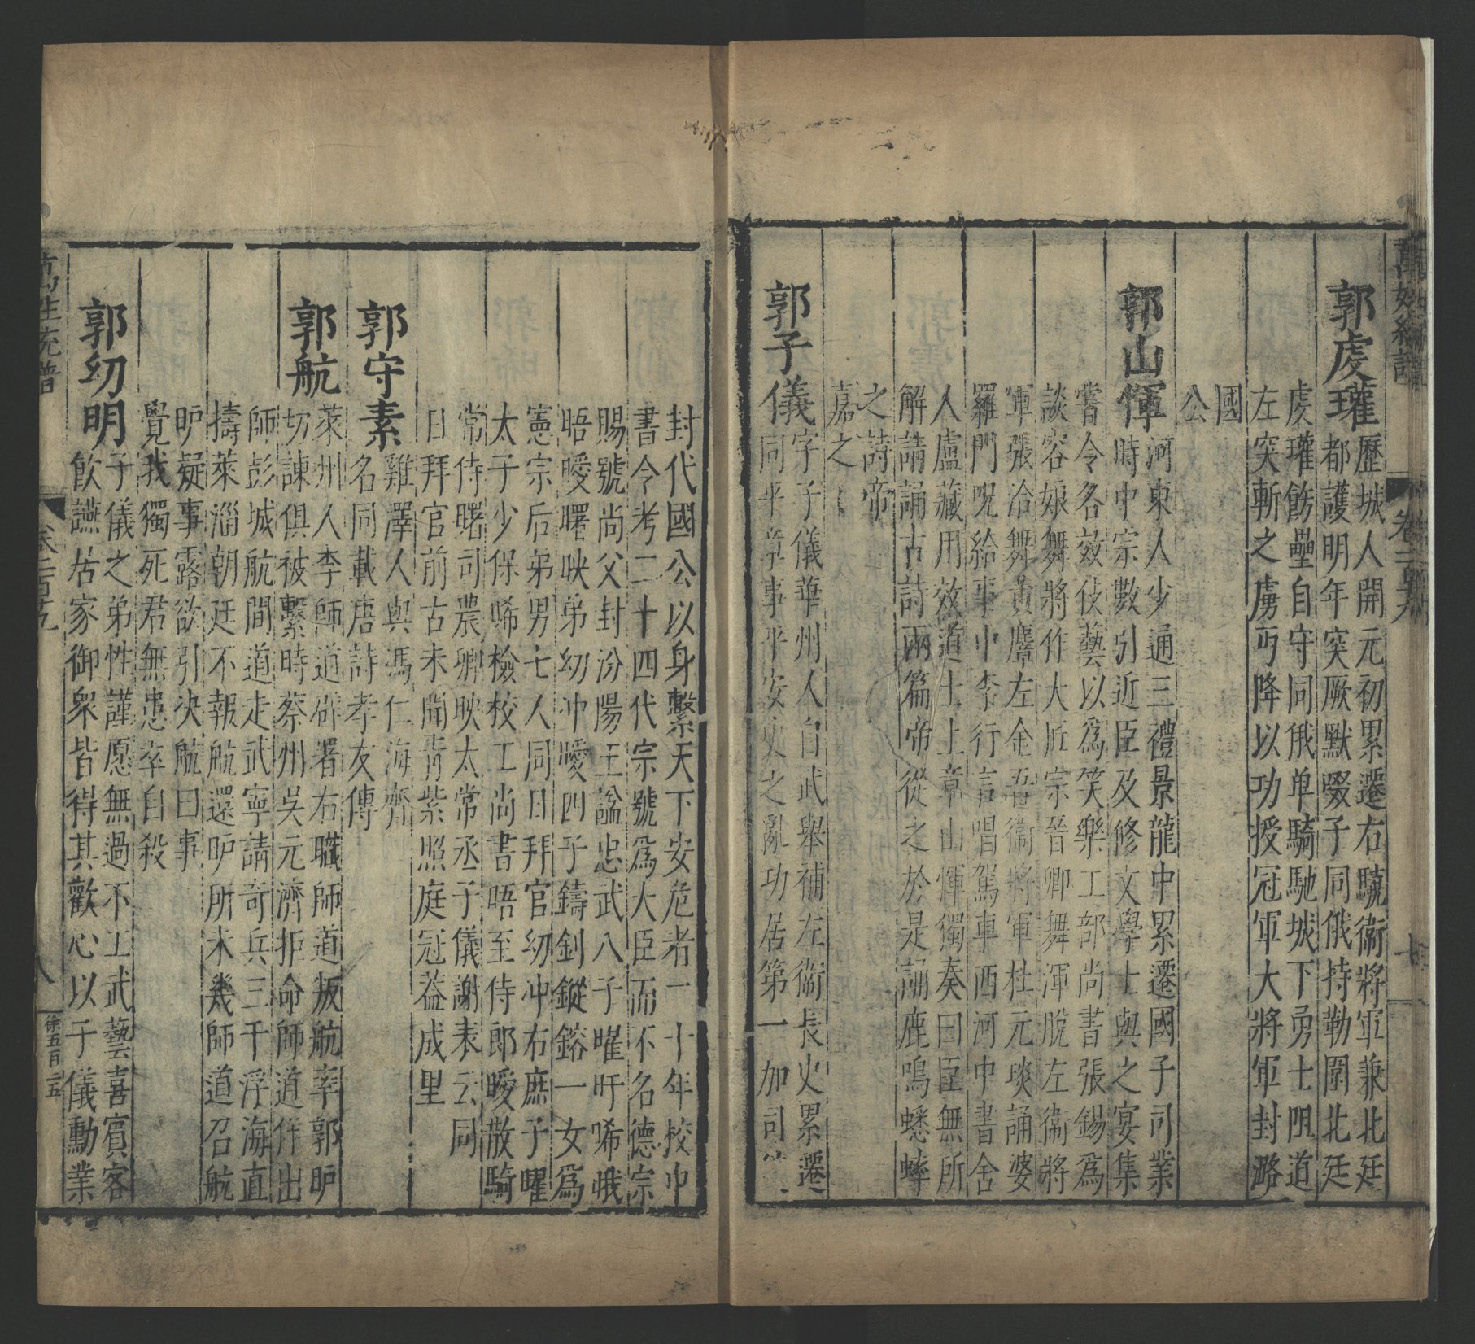 萬姓統譜
卷一百十九
郭虔瓘
歷城人開元初累遷右驍衛將軍兼北廷
都護明年突厥默啜子同俄持勒圍北廷
虔瓘飭壘自守同俄单騎馳城下勇士䦹道
左突斬之虜丐降以功授冠軍大將軍封潞
國
公
郭山惲
河東人少通三禮景龍中累遷國子司業
時中宗數引近臣及修文學士與之宴集
嘗令各效伎藝以為笑樂工部尚書張錫為
談容娘舞將作大匠宗晉卿舞渾脫左衛將
軍張洽舞黄麞左金吾衛將軍杜元琰誦婆
羅門呪給事中李行言唱駕車西河中書舍
人盧藏用效道士上章山惲獨奏曰臣無所
解誦誦古詩兩篇帝從之於是誦鹿鳴蟋蟀
之詩帝
嘉之
郭子儀
字子儀華州人自武舉補左衛長史累遷
同平章事平安史之亂功居第一加司徒
封代國公以身繫天下安危者二十年校中
書令考二十四代宗號為大臣而不名德宗
賜號尚父封汾陽王諡忠武八子曜旰晞㫰
晤曖曙映弟幼冲曖四子鑄釗鏦銛一女為
憲宗后弟男七人同日拜官幼冲右庶子曜
太子少保晞檢校工尚書晤至侍郎曖散騎
常侍曙司農卿映太常丞子儀謝表云同
日拜官前古未聞青紫照庭冠葢成里
郭守素
雞澤人與馮仁海齊
名同載唐詩孝友傳
郭航
萊州人李師道辟署右職師道叛航率郭昈
切諫俱被繫時蔡州吳元濟拒命師道件出
師彭城航間道走武寧請奇兵三千浮海直
擣萊淄朝廷不報航還昈所未幾師道召航
昈疑事露欲引决航曰事
覺我獨死君無患卒自殺
郭幼明
子儀之弟性謹愿無過不工武藝喜賓客
飲讌居家御衆皆得其歡心以子儀勳業
八